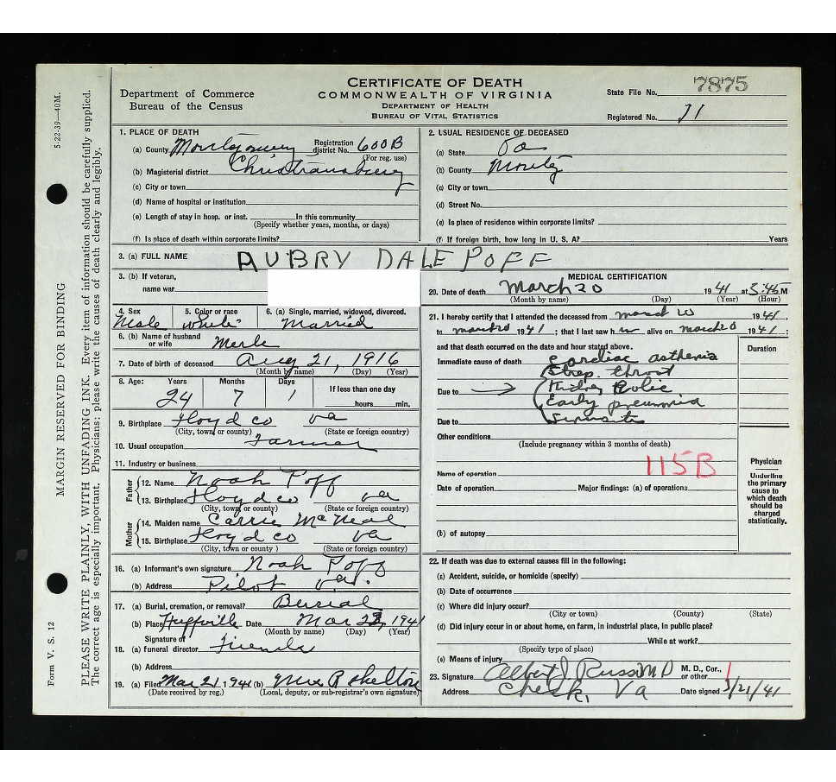 CERTIFICATE OF DEATH
COMMONWEALTH OF VIRGINIA
DEPARTMENT OF HEALTH
BUREAU OF VITAL STATISTICS
Department of Commerce
Bureau of the Census
State File No. 7875
Registered No. 71
5-22-39—40M.
MARGIN RESERVED FOR BINDING
PLEASE WRITE PLAINLY, WITH UNFADING INK. Every item of information should be carefully supplied.
The correct age is especially important. Physicians: please write the causes of death clearly and legibly.
Form V. S. 12
1. PLACE OF DEATH
(a) County Montgomery Registration district No. 600B
(For reg. use)
(b) Magisterial district Christiansburg
(c) City or town
(d) Name of hospital or institution
(e) Length of stay in hosp. or inst. In this community
(Specify whether years, months, or days)
(f) Is place of death within corporate limits?
2. USUAL RESIDENCE OF DECEASED
(a) State Va
(b) County Montg
(c) City or town
(d) Street No.
(e) Is place of residence within corporate limits?
(f) If foreign birth, how long in U. S. A? Years
3. (a) FULL NAME AUBRY DALE POFF
3. (b) If veteran,
name war
4. Sex 5. Color or race 6. (a) Single, married, widowed, divorced.
Male White Married
6. (b) Name of husband
or wife Merle
7. Date of birth of deceased Aug 21, 1916
(Month by name) (Day) (Year)
8. Age: Years Months Days If less than one day
24 7 1 hours min.
9. Birthplace Floyd co va
(City, town, or county) (State or foreign country)
10. Usual occupation Farmer
11. Industry or business
Father
12. Name Noah Poff
13. Birthplace Floyd co va
(City, town, or county) (State or foreign country)
Mother
14. Maiden name Carrie McNeal
15. Birthplace Floyd co va
(City, town or county) (State or foreign country)
16. (a) Informant's own signature Noah Poff
(b) Address Pilot va.
17. (a) Burial, cremation, or removal? Burial
(b) Place Huffville Date Mar 22, 1941
(Month by name) (Day) (Year)
18. (a) Signature of funeral director Friends
(b) Address
19. (a) Filed Mar 21, 1941 (b) Mrs R Shelton
(Date received by reg.) (Local, deputy, or sub-registrar's own signature)
MEDICAL CERTIFICATION
20. Date of death March 20 1941 at 3:45 M
(Month by name) (Day) (Year) (Hour)
21. I hereby certify that I attended the deceased from March 20 1941
to March 20 1941; that I last saw h im alive on March 20 1941;
and that death occurred on the date and hour stated above.
Duration
Immediate cause of death Cardiac asthenia
Strep. throat
Due to Kidney Colic
Early pneumonia
Due to Sinusitis
Other conditions
(Include pregnancy within 3 months of death)
115B
Name of operation
Date of operation Major findings: (a) of operations
(b) of autopsy
Physician
Underline the primary cause to which death should be charged statistically.
22. If death was due to external causes fill in the following:
(a) Accident, suicide, or homicide (specify)
(b) Date of occurrence
(c) Where did injury occur?
(City or town) (County) (State)
(d) Did injury occur in or about home, on farm, in industrial place, in public place?
While at work?
(Specify type of place)
(e) Means of injury
23. Signature Albert J. Russi MD M. D., Cor., or other 1
Address Check, Va Date signed 3/21/41